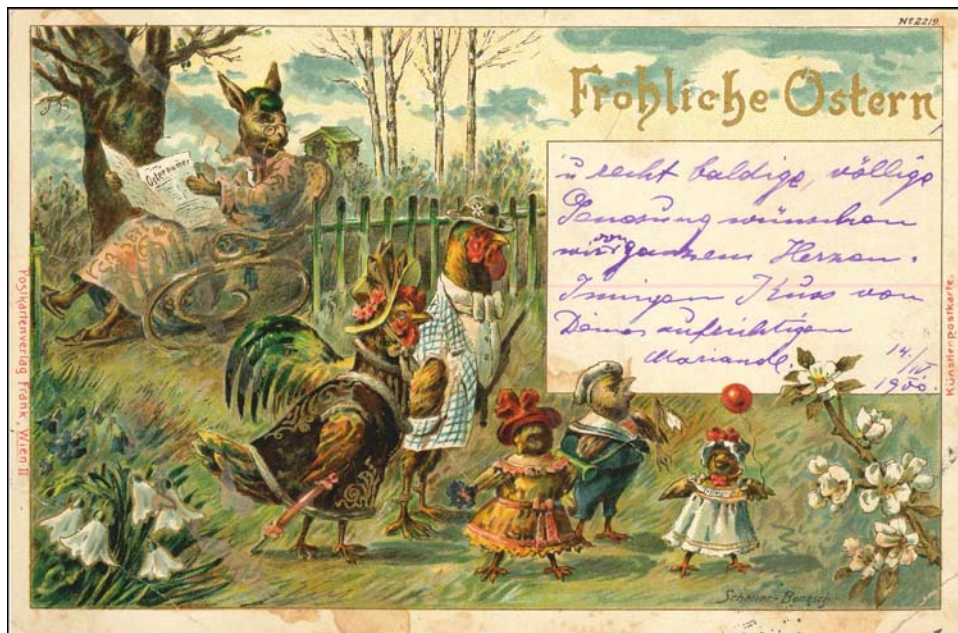 No 2219.
Fröhliche Ostern
u recht baldige, völlige
Genesung wünschen
wir von ganzem Herzen.
Innigen Kuss von
Deiner aufrichtigen
Mariandl.
14./IV
1900.
Osternummer
Postkartenverlag Frank, Wien II
Künstlerpostkarte.
Scheiner-Banesch